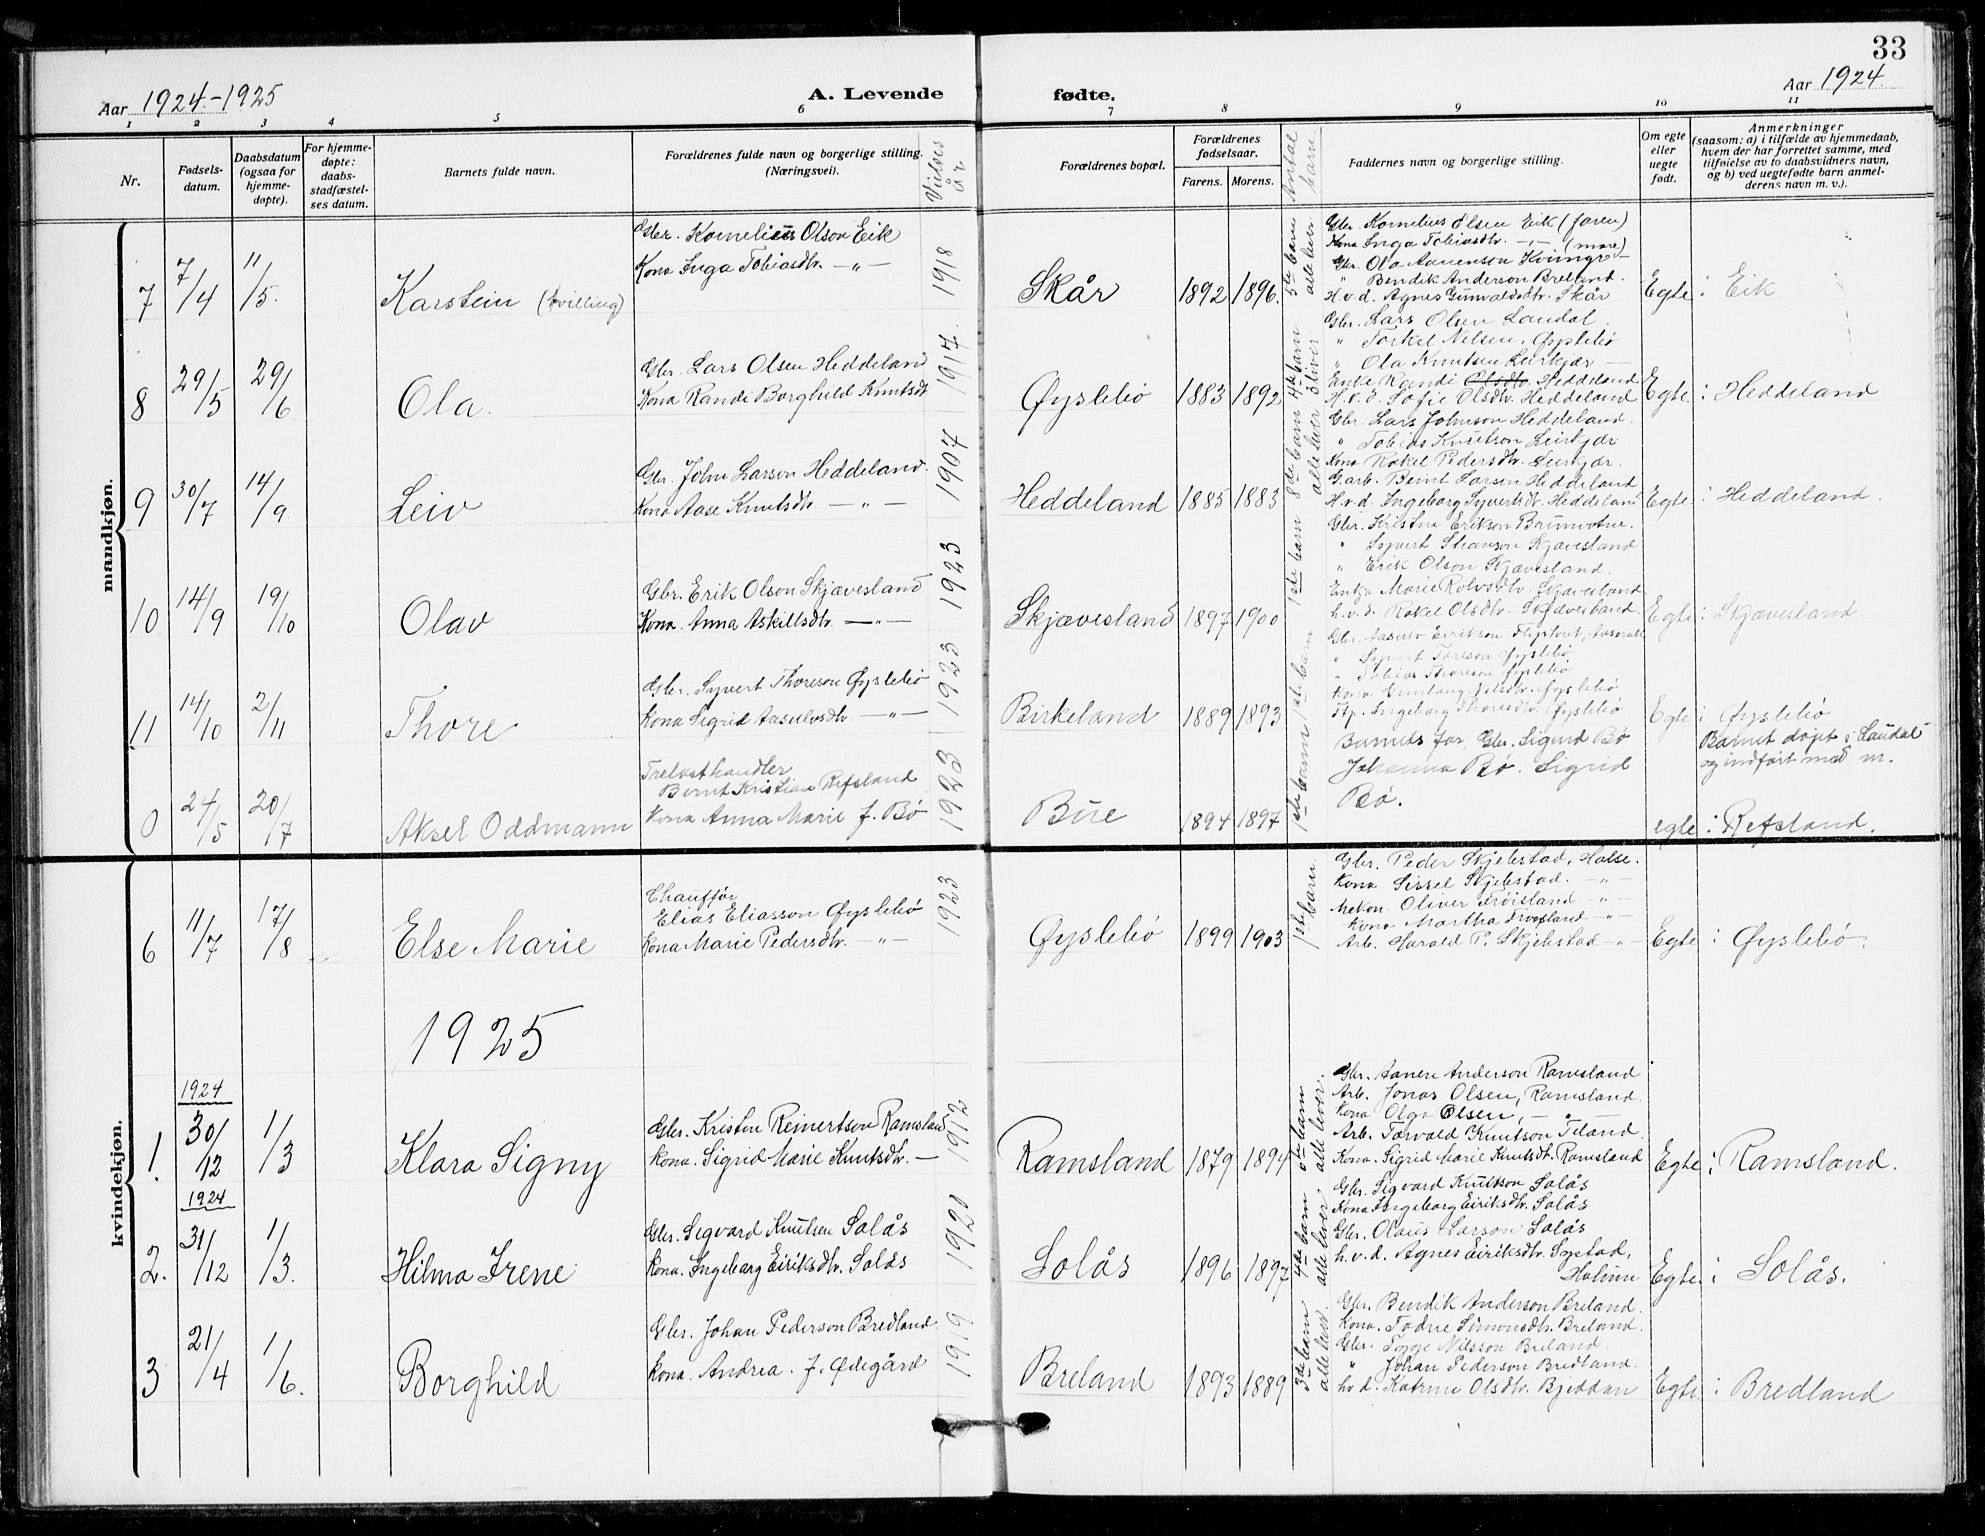 33
Aar 1924.-1925
A. Levende fødte.
Aar 1924.
1 2 3 4 5 6 7 8 9 10 11
Nr.
Fødsels-datum.
Daabsdatum (ogsaa for hjemme-døpte).
For hjemme-døpte: daabs-stadfæstel-ses datum.
Barnets fulde navn.
Forældrenes fulde navn og borgerlige stilling. (Næringsvei).
Vielses år.
Forældrenes bopæl.
Forældrenes fødselsaar.
Farens. Morens.
Antal barn.
Faddernes navn og borgerlige stilling.
Om egte eller uegte født.
Anmerkninger (saasom: a) i tilfælde av hjemmedaab, hvem der har forrettet samme, med tilføielse av to daabsvidners navn, og b) ved uegtefødte barn anmel-derens navn m. v.).
mandkjøn.
7 7/4 11/5. Karstein (tvilling)
Gbr. Kornelius Olson Eik
Kona Inga Tobiasdtr. -„-
1918
Skår 1892 1896.
5te barn alle lever
Gbr. Kornelius Olsen Eik (faren)
Kona Inga Tobiasdtr. -„- (more)
Gbr. Ola Aanensen Kvinge
„ Bendik Anderson Breland.
H.v.d. Agnes Gunvaldsdtr. Skår
Egte: Eik
8 29/5 29/6 Ola.
Gbr. Lars Olsen Heddeland
Kona Randi Borghild Knutsdt
1917.
Øyslebö 1883 1892
4de barn 3 lever
Gbr. Lars Olsen Laudal.
„ Torkel Nilsen, Øyslebö
„ Ola Knutsen Leirkjær
Enke Randi Olsdtr. Heddeland
H.v.d. Sofie Olsdtr. Heddeland
Egte: Heddeland
9 30/7 14/9 Leiv
Gbr. John Larson Heddeland.
Kona Aase Knutsdtr. -„-
1907
Heddeland 1885 1883
8de barn alle lever
Gbr. Lars Johnson Heddeland.
„ Tobias Knutson Leirkjær
Kona Rakel Pedersdtr. Leirkjær.
G.arb. Bernt Larsen Heddeland
H.v.d. Ingeborg Syvertsdt. Heddeland
Egte: Heddeland.
10 14/9 19/10 Olav
Gbr. Erik Olson Skjævesland
Kona. Anna Askillsdtr. -„-
1923
Skjævesland 1897 1900
1ste barn
Gbr. Kristen Erikson
„ Syvert Skjævesland
„ Erik Olson Skjævesland.
Enkja Marie Rolvsdtr. Skjævesland
h.v.d. Rakel Olsdtr. Skjævesland.
Egte: Skjævesland.
11 14/10 2/11 Thore
Gbr. Syvert Thoreson Øyslebö
Kona Sigrid Aasulvsdtr. -„-
1923
Birkeland 1889 1893
1ste barn
Gbr. Aasulv Eirikson
„ Syvert Toreson Øyslebö
„ Tobias Thoreson Øyslebö
Kona Gunlaug Nilsdtr. Øyslebö
Ingeborg Thoresdtr. Øyslebö
Egte: Øyslebö
0 24/5 20/7 Aksel Oddmann
Trelasthandler
Bernt Kristian Refsland
Kona Anna Marie f. Bø
1923
Bue 1894 1897
1ste barn
Barnets far, Gbr. Sigurd Bø
Johanna Bø. Sigrid
Bø.
Barnet døpt i Laudal
og indført med nr.
egte: Refsland.
kvindekjøn.
6 11/7 17/8 Else Marie
Chauffør
Elias Eliasson Øyslebö
Kona Marie Pedersdtr. -„-
1923
Øyslebö 1899 1903
1ste barn.
Gbr. Peder Skjebstad, Halse.
Kona Sissel Skjebstad. -„-
Mekan. Oliver Frøisland -„-
Kona Martha Frøisland -„-
Arb. Harald P. Skjebstad -„-
Egte: Øyslebö.
1925
1924
1. 30/12 1/3 Klara Signy
Gbr. Kristen Reinertson Ramsland
Kona. Sigrid Marie Knutsdtr. -
1912
Ramsland 1879 1894
5te barn alle lever.
Gbr. Aanen Anderson Ramsland
Arb. Jonas Olsen, Ramsland.
Kona Olga Olsen, - „ -
Arb. Torvald Knutson Teland.
Kona. Sigrid Marie Knutsdtr. Ramsland
Egte: Ramsland.
1924
2. 31/12 1/3. Hilma Irene
Gbr. Segvard Knutsen Solås
Kona. Ingeborg Eiriksdtr. Solås
1920
Solås 1896 1897
4de barn alle lever
Gbr. Sigvard Knutson Solås
Kona Ingeborg Eiriksdtr. Solås
Gbr. Olaus Larson Solås
h.v.d. Agnes Eiriksdtr. Systad,
Holum
Egte: Solås.
3 21/4 1/6. Borghild
Gbr. Johan Pederson Bredland
Kona. Andrea. f. Ødegård
1919
Breland 1893 1889
3de barn alle lever.
Gbr. Bendik Anderson Breland.
Kona. Todne Simonsdtr. Breland.
Gbr. Tygje Nilsson Breland.
„ Johan Pederson Bredland.
hv d. Katrine Olsdtr. Bjeddan
Egte: Bredland